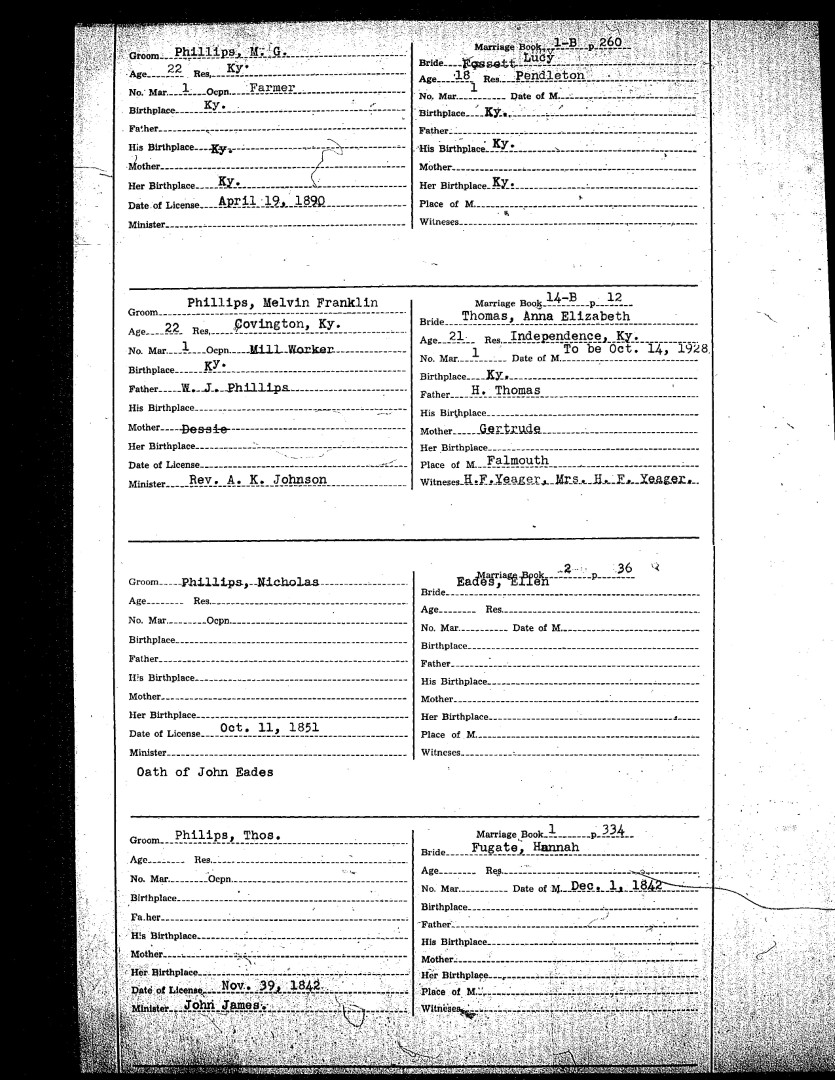 Groom Phillips, M. G.
Age 22 Res. Ky.
No. Mar. 1 Ocpn. Farmer
Birthplace Ky.
Father
His Birthplace Ky.
Mother
Her Birthplace Ky.
Date of License April 19, 1890
Minister
Marriage Book 1-B p 260
Bride Fossett Lucy
Age 18 Res. Pendleton
No. Mar. 1 Date of M.
Birthplace Ky.
Father
His Birthplace Ky.
Mother
Her Birthplace Ky.
Place of M.
Witnesses
Groom Phillips, Melvin Franklin
Age 22 Res. Covington, Ky.
No. Mar. 1 Ocpn. Mill Worker
Birthplace Ky.
Father W. J. Phillips
His Birthplace
Mother Dessie
Her Birthplace
Date of License
Minister Rev. A. K. Johnson
Marriage Book 14-B p 12
Bride Thomas, Anna Elizabeth
Age 21 Res. Independence, Ky.
No. Mar. 1 Date of M. To be Oct. 14, 1928
Birthplace Ky.
Father H. Thomas
His Birthplace
Mother Gertrude
Her Birthplace
Place of M. Falmouth
Witnesses H.F.Yeager, Mrs. H. F. Yeager.
Groom Phillips, Nicholas
Age Res.
No. Mar. Ocpn.
Birthplace
Father
His Birthplace
Mother
Her Birthplace
Date of License Oct. 11, 1851
Minister
Oath of John Eades
Marriage Book 2 p 36
Bride Eades, Ellen
Age Res.
No. Mar. Date of M.
Birthplace
Father
His Birthplace
Mother
Her Birthplace
Place of M.
Witnesses
Groom Philips, Thos.
Age Res.
No. Mar. Ocpn.
Birthplace
Father
His Birthplace
Mother
Her Birthplace
Date of License Nov. 39, 1842
Minister John James.
Marriage Book 1 p 334
Bride Fugate, Hannah
Age Res.
No. Mar. Date of M. Dec. 1, 1842
Birthplace
Father
His Birthplace
Mother
Her Birthplace
Place of M.
Witnesses